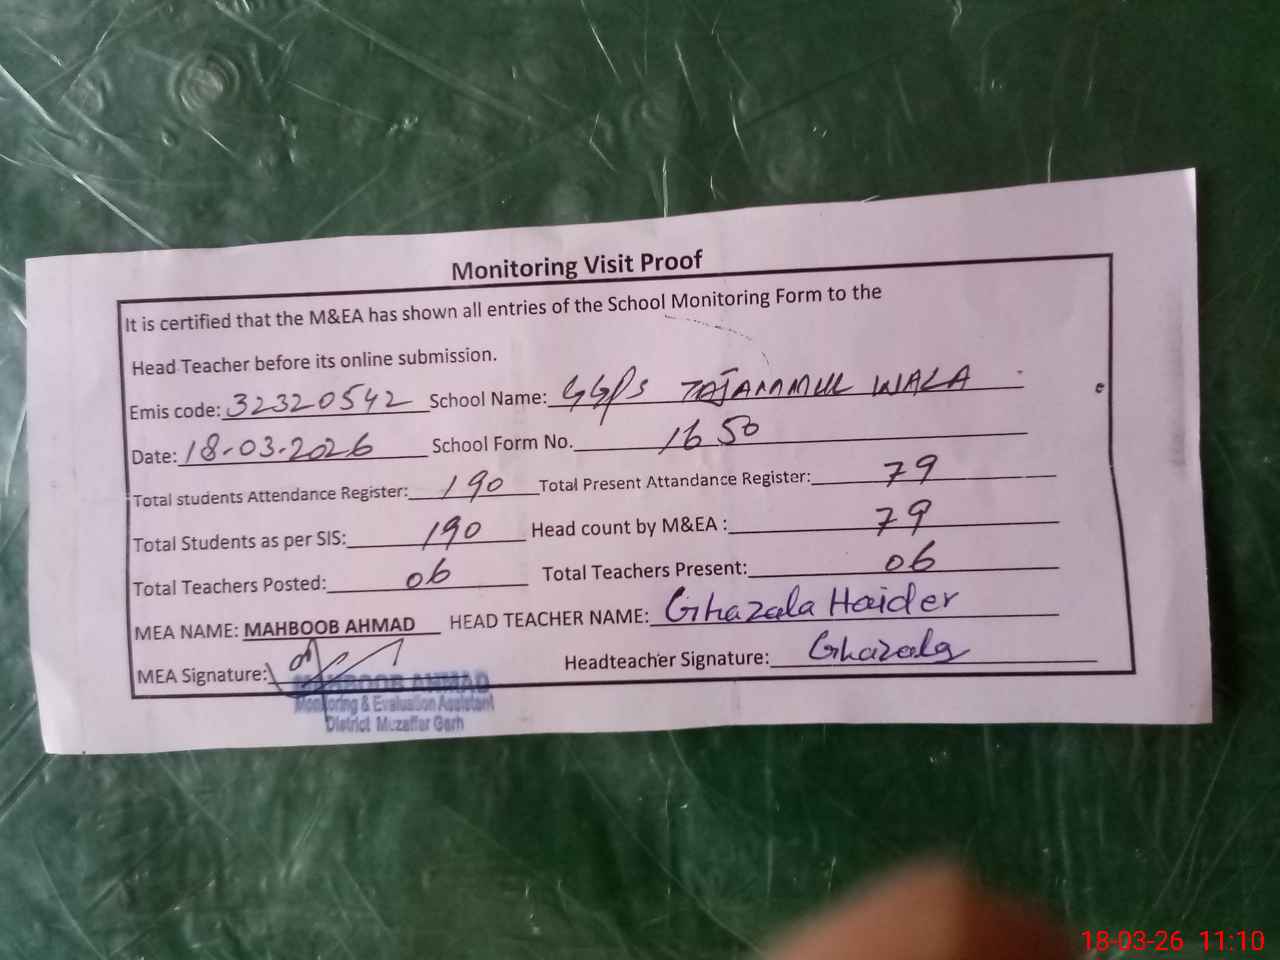 Monitoring Visit Proof
It is certified that the M&EA has shown all entries of the School Monitoring Form to the
Head Teacher before its online submission.
Emis code: 32320542 School Name: GGPS TAJAMMUL WALA
Date: 18-03-2026 School Form No. 1650
Total students Attendance Register: 190 Total Present Attandance Register: 79
Total Students as per SIS: 190 Head count by M&EA : 79
Total Teachers Posted: 06 Total Teachers Present: 06
MEA NAME: MAHBOOB AHMAD HEAD TEACHER NAME: Ghazala Haider
MEA Signature: Headteacher Signature: Ghazala
MAHBOOB AHMAD
Monitoring & Evaluation Assistant
District Muzaffar Garh
18-03-26 11:10